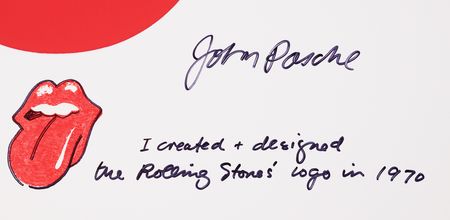 John Pasche
I created + designed
the Rolling Stones' logo in 1970